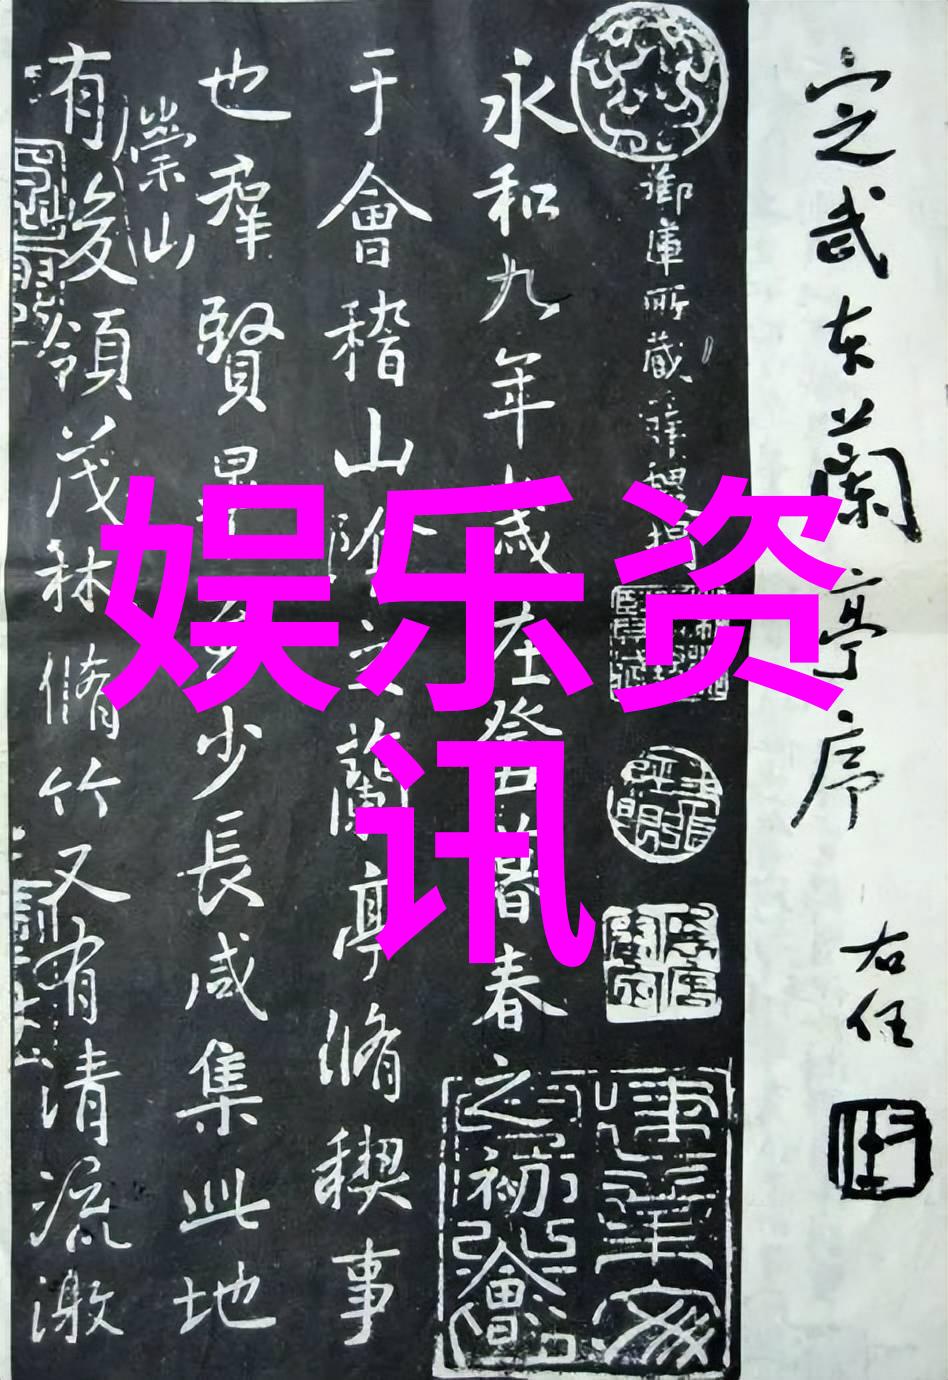 定武本蘭亭序
右任
御庫所藏
永和九年歲在癸丑暮春之初會
于會稽山陰之蘭亭脩稧事
也羣賢畢至少長咸集此地
崇山
有峻領茂林脩竹又有清流激
娱乐资
讯